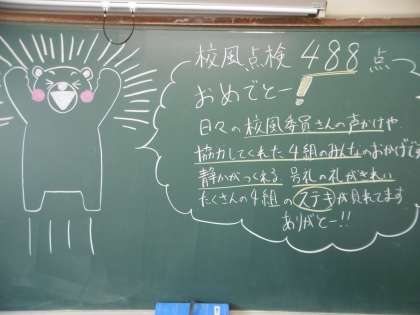 校風点検 488点
おめでとー!
日々の校風委員さんの声かけや
協力してくれた4組のみんなのおかげです
静かがつくれる 号礼の礼がきれい
たくさんの4組のステキが見れてます
ありがとー!!